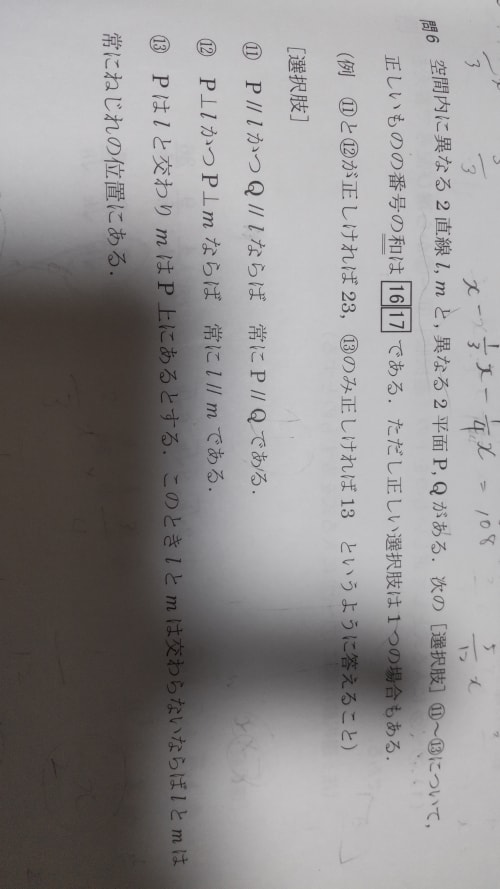 問6 空間内に異なる2直線l, mと, 異なる2平面P, Qがある. 次の [選択肢] ⑪~⑬について,
正しいものの番号の和は 16 17 である. ただし正しい選択肢は1つの場合もある.
(例 ⑪と⑫が正しければ23, ⑬のみ正しければ13 というように答えること)
[選択肢]
⑪ P∥lかつQ∥lならば 常にP∥Qである.
⑫ P⊥lかつP⊥mならば 常にl∥mである.
⑬ Pはlと交わりmはP上にあるとする. このときlとmは交わらないならばlとmは
常にねじれの位置にある.
x - 1/3 x - 1/4 x = 108
5/12 x